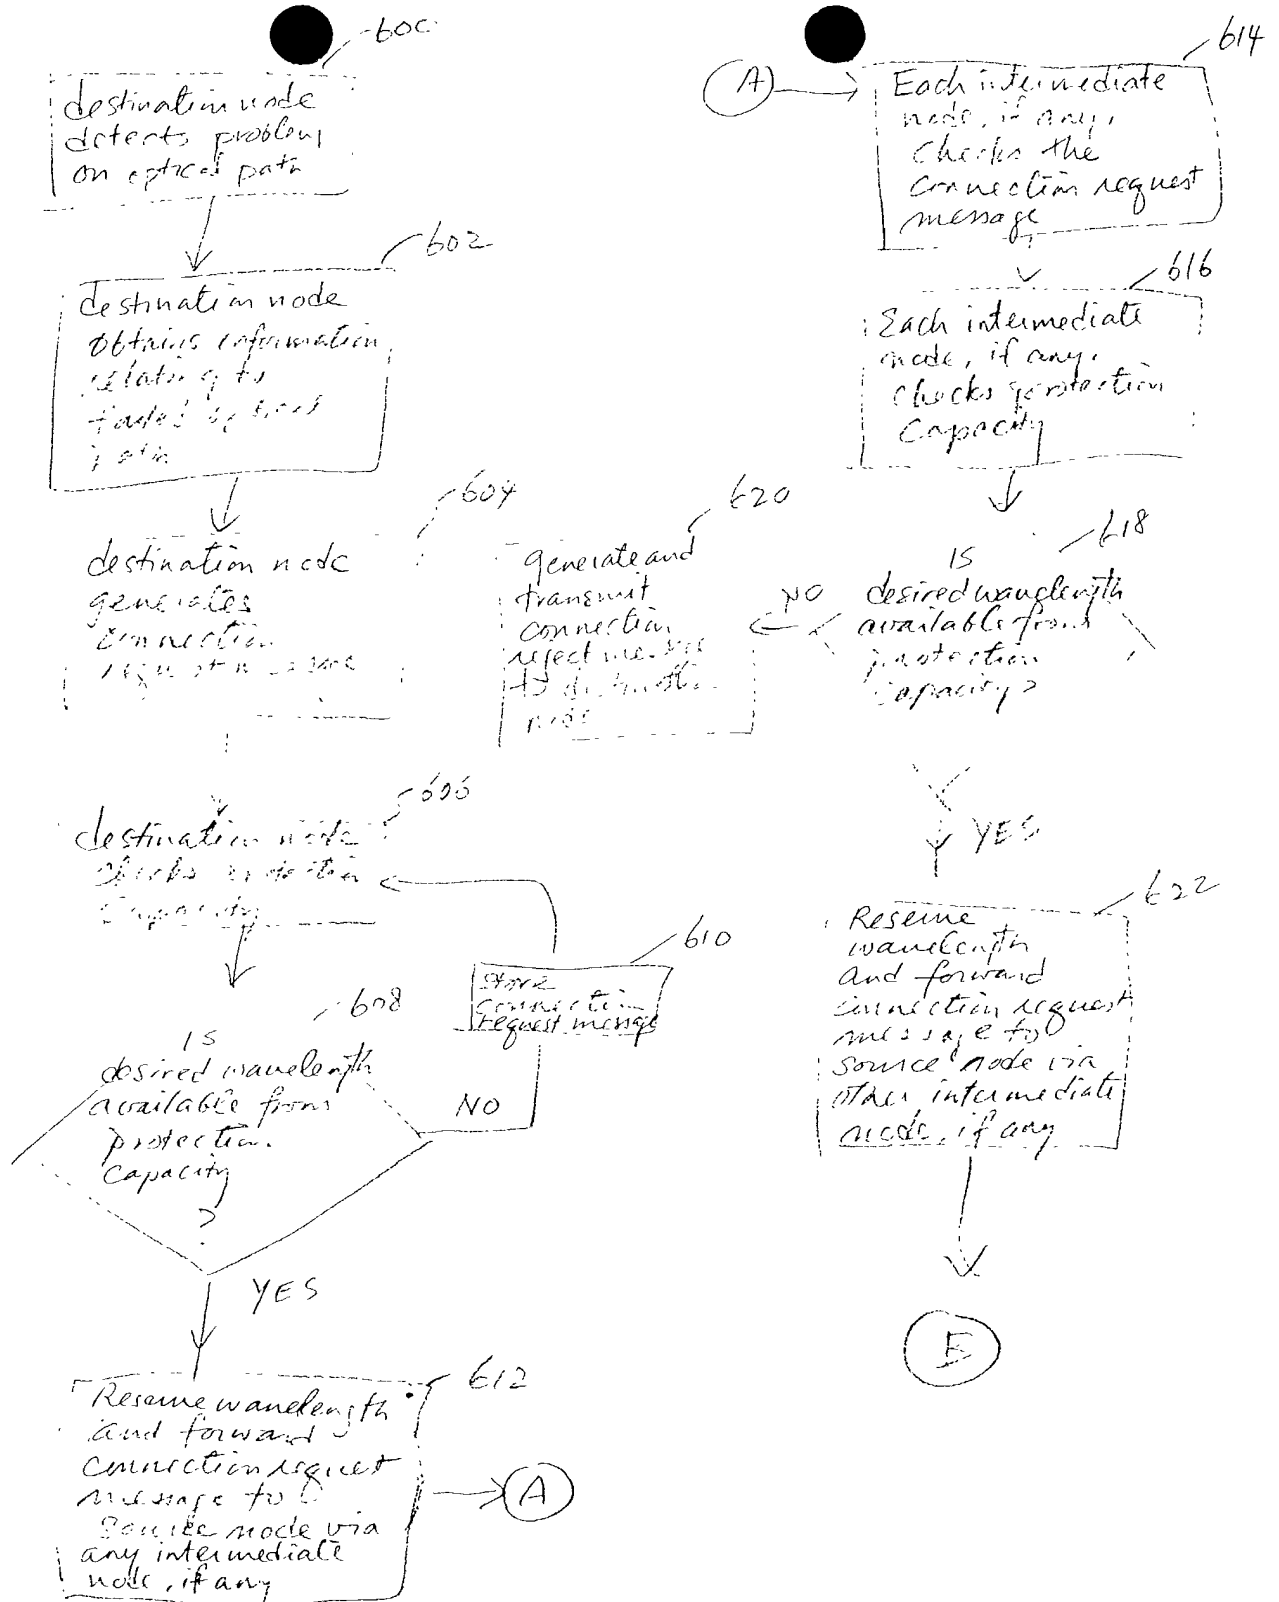 600
destination node
detects problem
on optical path
602
destination node
obtains information
relating to
failed optical
path
604
destination node
generates
connection
request message
606
destination node
checks protection
capacity
610
store
connection
request message
608
IS
desired wavelength
available from
protection
capacity
?
NO
YES
612
Reserve wavelength
and forward
connection request
message to
source node via
any intermediate
node, if any
A
614
A
Each intermediate
node, if any,
checks the
connection request
message
616
Each intermediate
node, if any,
checks protection
capacity
618
IS
desired wavelength
available from
protection
capacity?
NO
620
generate and
transmit
connection
reject message
to destination
node
YES
622
Reserve
wavelength
and forward
connection request
message to
source node via
other intermediate
node, if any